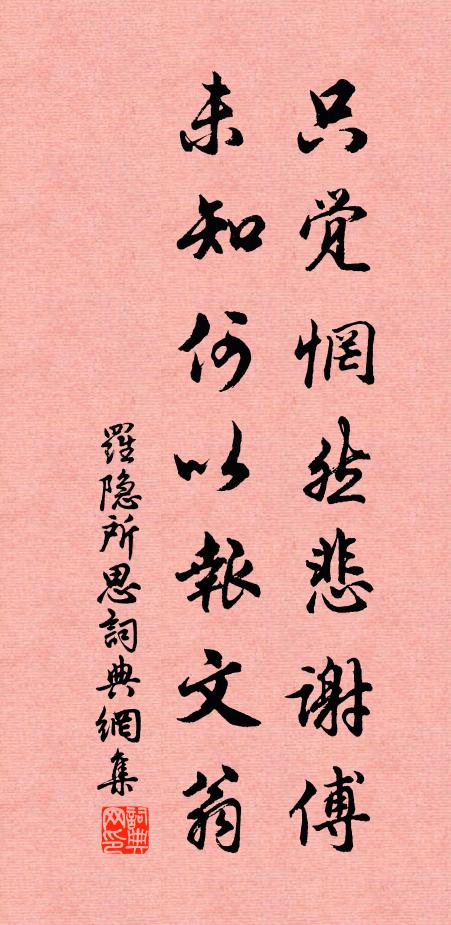 只觉惘然悲谢傅
未知何以報文翁
羅隐所思詞典網集
詞典网印